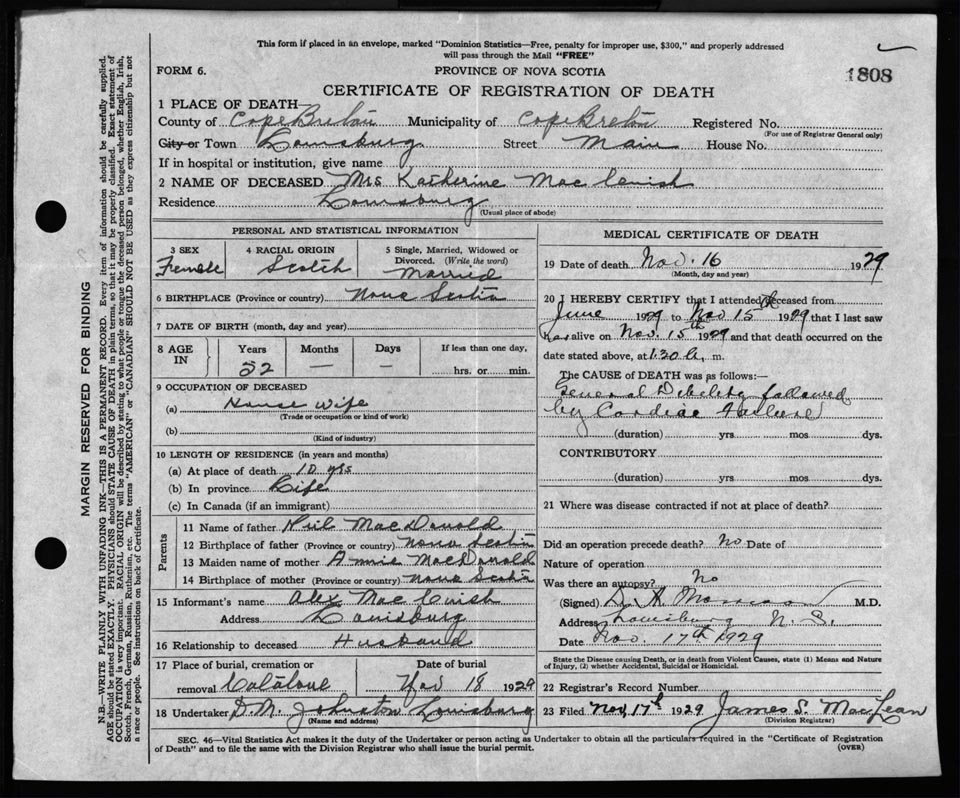 This form if placed in an envelope, marked "Dominion Statistics—Free, penalty for improper use, $300," and properly addressed
will pass through the Mail "FREE"
FORM 6. PROVINCE OF NOVA SCOTIA 1808
CERTIFICATE OF REGISTRATION OF DEATH
1 PLACE OF DEATH
County of Cape Breton Municipality of Cape Breton Registered No.
(For use of Registrar General only)
City or Town Louisburg Street Main House No.
If in hospital or institution, give name
2 NAME OF DECEASED Mrs Katherine Mac
Residence Louisburg
(Usual place of abode)
PERSONAL AND STATISTICAL INFORMATION
3 SEX 4 RACIAL ORIGIN 5 Single, Married, Widowed or
Divorced. (Write the word)
Female Scotch Married
6 BIRTHPLACE (Province or country) Nova Scotia
7 DATE OF BIRTH (month, day and year)
8 AGE IN Years Months Days If less than one day,
52 — — hrs. or min.
9 OCCUPATION OF DECEASED
(a) House wife
(Trade or occupation or kind of work)
(b)
(Kind of industry)
10 LENGTH OF RESIDENCE (in years and months)
(a) At place of death 10 yrs
(b) In province Life
(c) In Canada (if an immigrant)
Parents
11 Name of father Neil MacDonald
12 Birthplace of father (Province or country) Nova Scotia
13 Maiden name of mother Annie MacDonald
14 Birthplace of mother (Province or country) Nova Scotia
15 Informant's name Alex Mac
Address Louisburg
16 Relationship to deceased Husband
17 Place of burial, cremation or Date of burial
removal Catalone Nov 18 1929
18 Undertaker D.M. Johnston Louisburg
(Name and address)
MEDICAL CERTIFICATE OF DEATH
19 Date of death Nov. 16 1929
(Month, day and year)
20 I HEREBY CERTIFY that I attended deceased from
June 1929 to Nov 15 1929 that I last saw
her alive on Nov. 15th 1929 and that death occurred on the
date stated above, at 1.30 a. m.
The CAUSE of DEATH was as follows:—
General Debility followed
by Cardiac Failure
(duration) yrs mos dys.
CONTRIBUTORY
(duration) yrs mos dys.
21 Where was disease contracted if not at place of death?
Did an operation precede death? No Date of
Nature of operation
Was there an autopsy? No
(Signed) D. A. M.D.
Address Louisburg N. S.
Date Nov. 17th 1929
State the Disease causing Death, or in death from Violent Causes, state (1) Means and Nature
of Injury, (2) whether Accidental, Suicidal or Homicidal.
22 Registrar's Record Number
23 Filed Nov 17th 1929 James S. MacLean
(Division Registrar)
SEC. 46—Vital Statistics Act makes it the duty of the Undertaker or person acting as Undertaker to obtain all the particulars required in the "Certificate of Registration
of Death" and to file the same with the Division Registrar who shall issue the burial permit. (OVER)
MARGIN RESERVED FOR BINDING
N.B.—WRITE PLAINLY WITH UNFADING INK—THIS IS A PERMANENT RECORD. Every item of information should be carefully supplied.
AGE should be stated EXACTLY. PHYSICIANS should STATE CAUSE OF DEATH in plain terms, so that it may be properly classified. Exact statement of
OCCUPATION is very important. RACIAL ORIGIN will be described by stating to what people or tongue the deceased person belonged, whether English, Irish,
Scotch, French, German, Russian, Ruthenian, etc. The terms "AMERICAN" or "CANADIAN" SHOULD NOT BE USED as they express citizenship but not
a race or people. See instructions on back of Certificate.